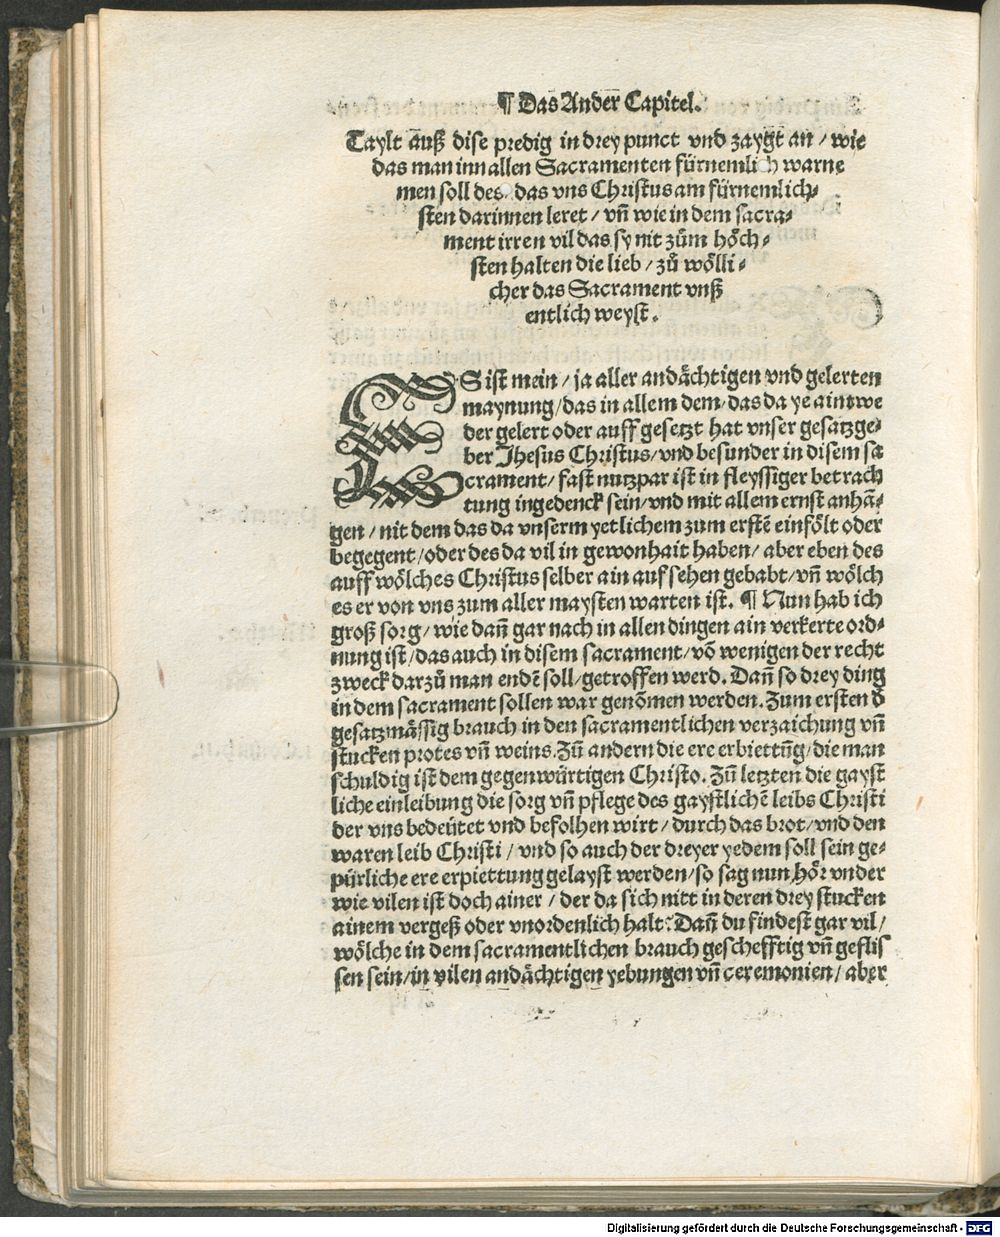 ¶ Das Ander Capitel.
Taylt auß dise predig in drey punct vnd zaygt an / wie
das man inn allen Sacramenten fürnemlich warne
men soll des / das vns Christus am fürnemlich⸗
sten darinnen leret / vñ wie in dem sacra⸗
ment irren vil das sy nit zům höch⸗
sten halten die lieb / zů wölli⸗
cher das Sacrament vnß
entlich weyst.
ES ist mein / ja aller andächtigen vnd gelerten
maynung / das in allem dem / das da ye aintwe
der gelert oder auff gesetzt hat vnser gesatzge⸗
ber Jhesus Christus / vnd besunder in disem sa
crament / fast nutzpar ist in fleyssiger betrach
tung ingedenck sein / vnd mit allem ernst anhä⸗
gen / nit dem das da vnserm yetlichem zum erstẽ einfölt oder
begegent / oder des da vil in gewonhait haben / aber eben des
auff wölches Christus selber ain auf sehen gehabt / vñ wölch
es er von vns zum aller maysten warten ist. ¶ Nun hab ich
groß sorg / wie dañ gar nach in allen dingen ain verkerte ord⸗
nung ist / das auch in disem sacrament / võ wenigen der recht
zweck darzů man endẽ soll / getroffen werd. Dañ so drey ding
in dem sacrament sollen war genõmen werden. Zum ersten d̃
gesatzmässig brauch in den sacramentlichen verzaichung vñ
stucken protes vñ weins. Zũ andern die ere erbiettũg / die man
schuldig ist dem gegenwürtigen Christo. Zũ letzten die gayst
liche einleibung die sorg vñ pflege des gaystlichẽ leibs Christi
der vns bedeütet vnd befolhen wirt / durch das brot / vnd den
waren leib Christi / vnd so auch der dreyer yedem soll sein ge⸗
pürliche ere erpiettung gelayst werden / so sag nun hör vnder
wie vilen ist doch ainer / der da sich nitt in deren drey stucken
ainem vergeß oder vnordenlich halt. Dañ du findest gar vil /
wölche in dem sacramentlichen brauch geschefftig vñ geflis
sen sein / in vilen andächtigen yebungen vñ ceremonien / aber
Digitalisierung gefördert durch die Deutsche Forschungsgemeinschaft - DFG